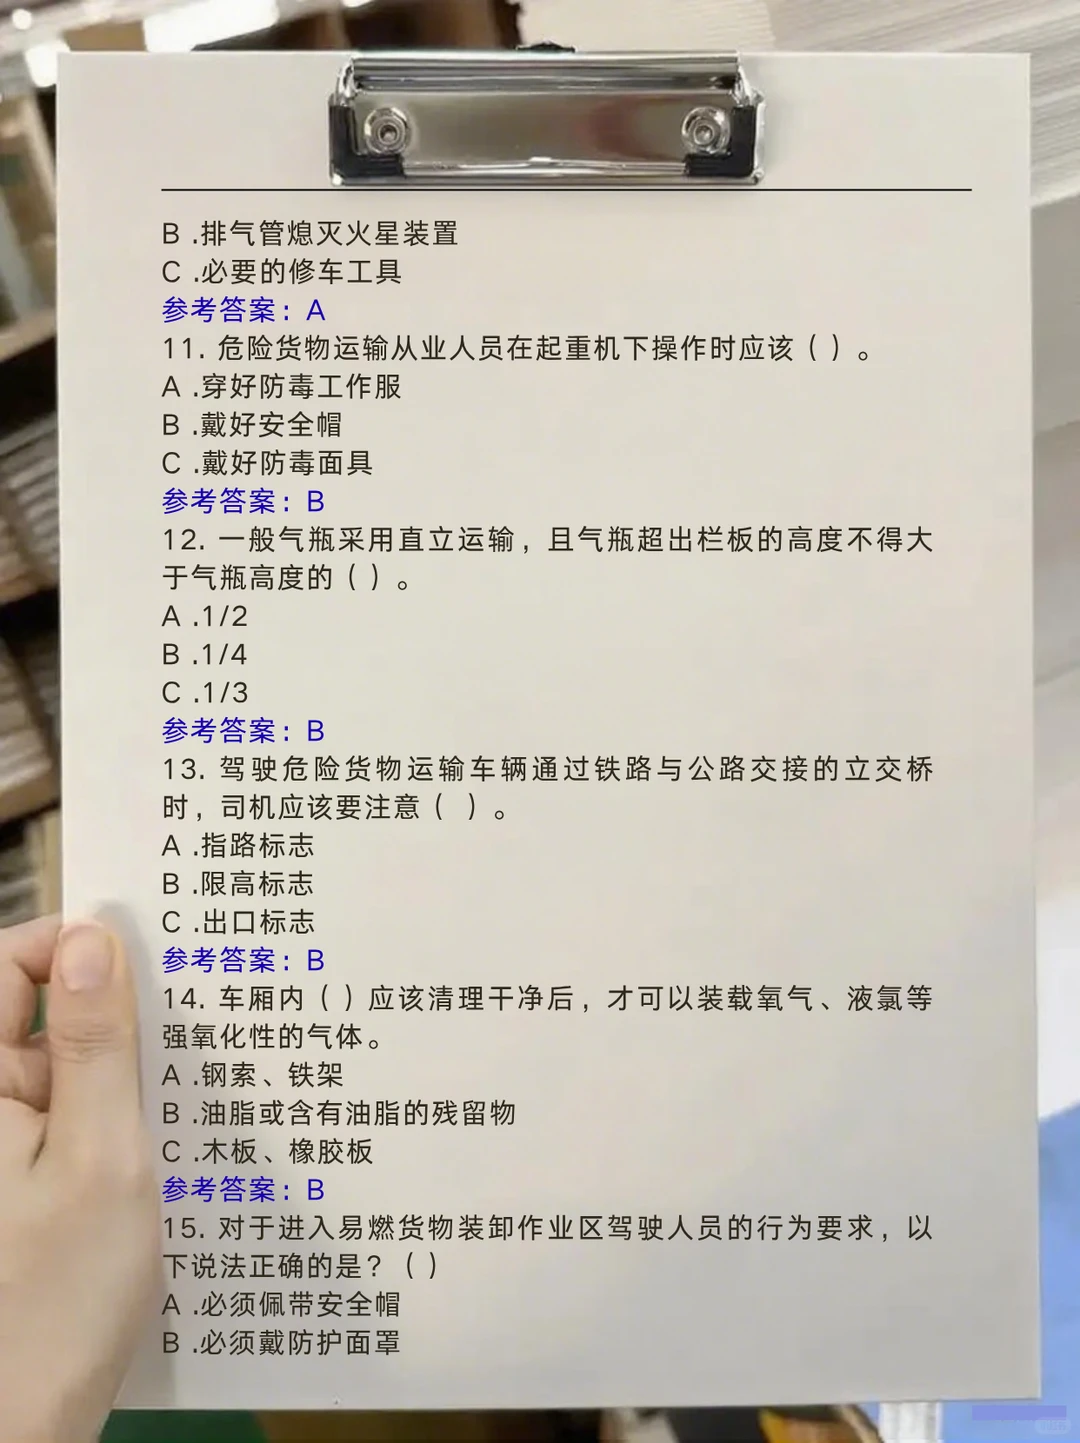 B .排气管熄灭火星装置
C .必要的修车工具
参考答案：A
11. 危险货物运输从业人员在起重机下操作时应该（ ）。
A .穿好防毒工作服
B .戴好安全帽
C .戴好防毒面具
参考答案：B
12. 一般气瓶采用直立运输，且气瓶超出栏板的高度不得大
于气瓶高度的（ ）。
A .1/2
B .1/4
C .1/3
参考答案：B
13. 驾驶危险货物运输车辆通过铁路与公路交接的立交桥
时，司机应该要注意（ ）。
A .指路标志
B .限高标志
C .出口标志
参考答案：B
14. 车厢内（ ）应该清理干净后，才可以装载氧气、液氯等
强氧化性的气体。
A .钢索、铁架
B .油脂或含有油脂的残留物
C .木板、橡胶板
参考答案：B
15. 对于进入易燃货物装卸作业区驾驶人员的行为要求，以
下说法正确的是？（ ）
A .必须佩带安全帽
B .必须戴防护面罩